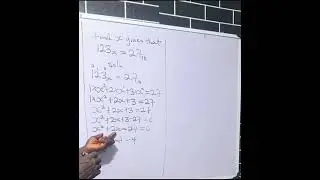 Find x given that
123ₓ = 27₁₀
Soln
123ₓ = 27₁₀
1x²+2x¹+3x⁰=27
1x²+2x+3=27
x²+2x+3=27
x²+2x+3-27=0
x²+2x-24=0